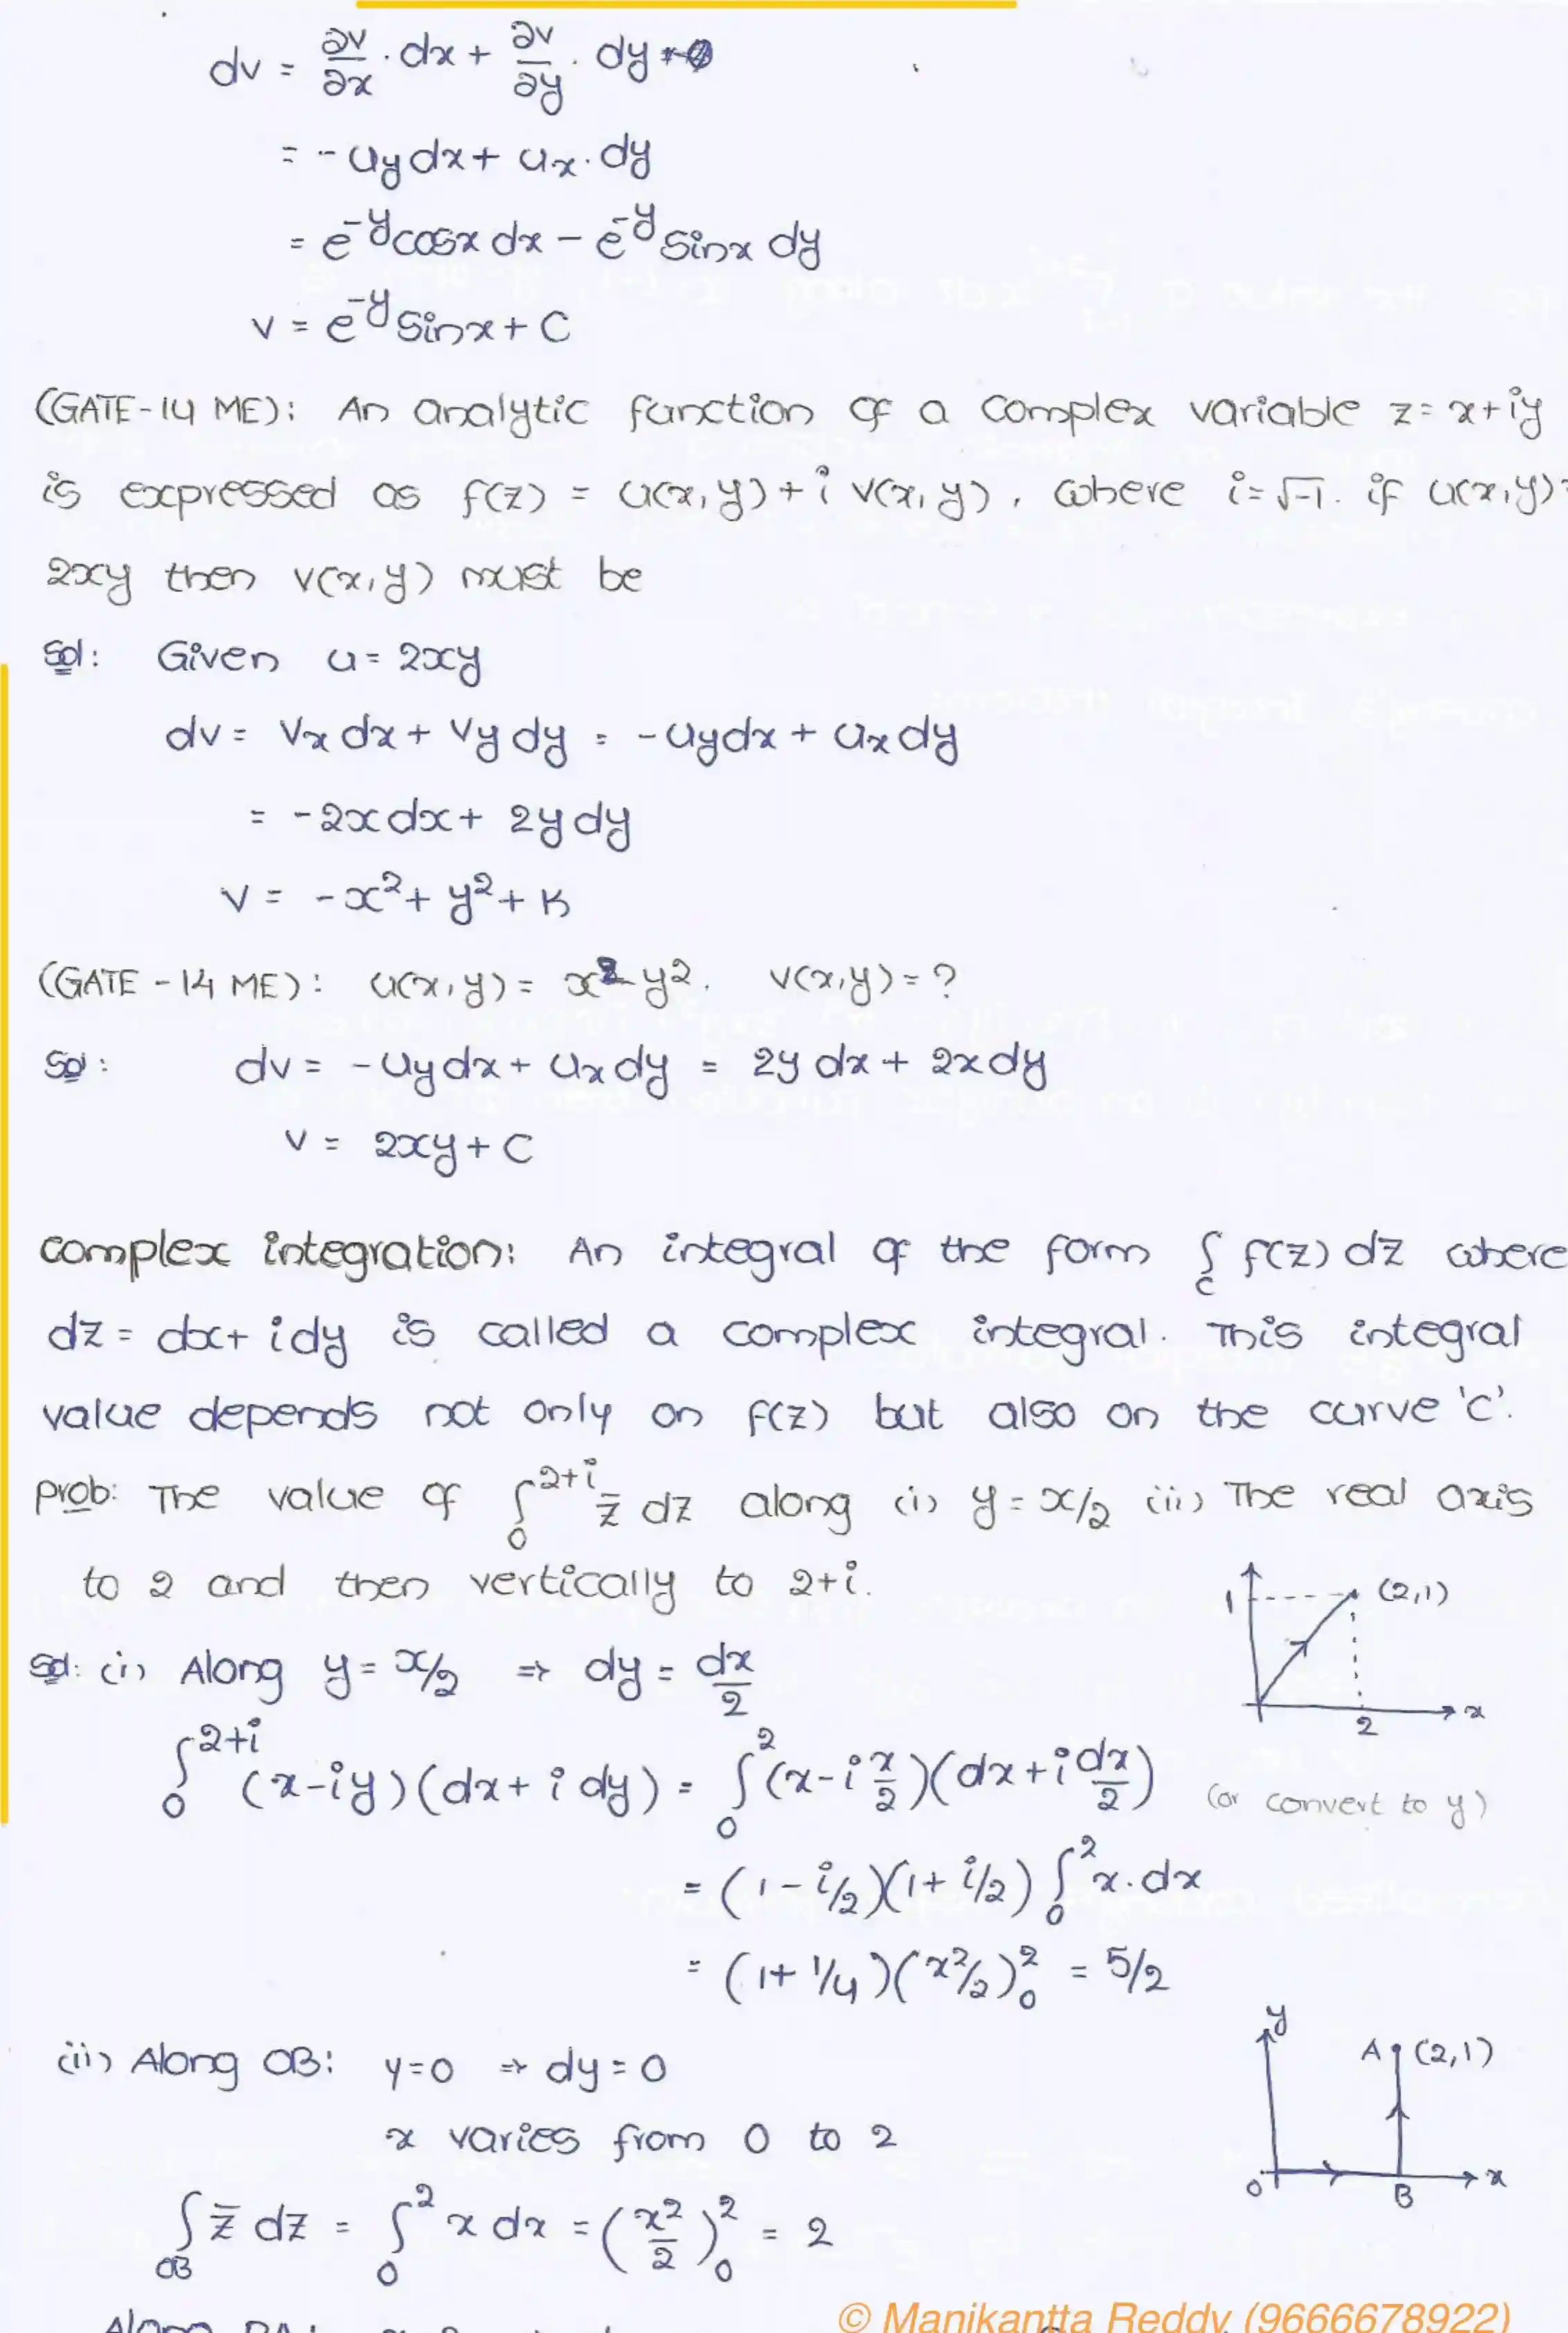 dv = ∂v/∂x · dx + ∂v/∂y · dy
= -uy dx + ux · dy
= e^-y cosx dx - e^-y sinx dy
v = e^-y sinx + C
(GATE-14 ME): An analytic function of a complex variable z = x+iy
is expressed as f(z) = u(x,y) + i v(x,y), where i=√-1. if u(x,y)=
2xy then v(x,y) must be
Sol: Given u = 2xy
dv = Vx dx + Vy dy = -uydx + uxdy
= -2x dx + 2y dy
V = -x² + y² + K
(GATE - 14 ME): u(x,y) = x²-y². v(x,y) = ?
Sol: dv = -uydx + uxdy = 2y dx + 2xdy
v = 2xy + C
complex integration: An integral of the form ∫c f(z) dz where
dz = dx + idy is called a complex integral. This integral
value depends not only on f(z) but also on the curve 'c'.
Prob: The value of ∫₀^2+i z̄ dz along (i) y = x/2 (ii) The real axis
to 2 and then vertically to 2+i.
1 (2,1)
2 x
Sol: (i) Along y = x/2 ⇒ dy = dx/2
∫₀^2+i (x-iy)(dx + i dy) = ∫₀² (x - i x/2)(dx + i dx/2) (or convert to y)
= (1 - i/2)(1 + i/2) ∫₀² x.dx
= (1 + 1/4)(x²/2)₀² = 5/2
y
(ii) Along OB: y=0 ⇒ dy = 0
A (2,1)
x varies from 0 to 2
O B x
∫OB z̄ dz = ∫₀² x dx = (x²/2)₀² = 2
© Manikantta Reddy (9666678922)